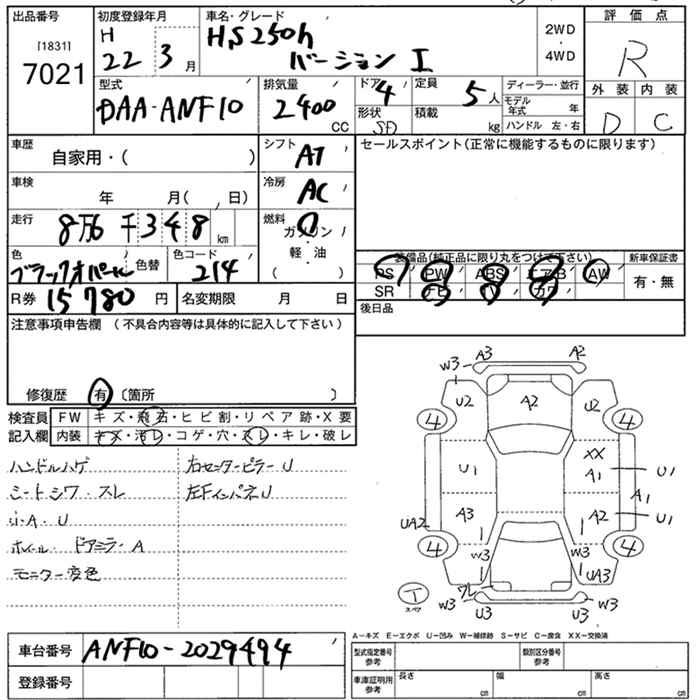 出品番号
[1831]
7021
初度登録年月
H
22 3月
車名・グレード
HS250h
バージョン I
2WD
・
4WD
評価点
R
外装 内装
D C
型式
DAA-ANF10
排気量
2400
CC
ドア 4
形状 SD
定員 5人
積載 kg
ディーラー・並行
モデル年式 年
ハンドル 左・右
車歴
自家用・( )
シフト
AT
セールスポイント(正常に機能するものに限ります)
車検
年 月( , 日)
冷房
AC
走行
8万6千348 km
燃料
ガソリン
・
軽・油
( )
色
ブラックオパール
色替
色コード
214
装備品(純正品に限り丸をつけて下さい)
PS PW ABS エアB AW
SR ナビ TV カワ
新車保証書
有・無
R券 15780円
名変期限 月 日
後日品
注意事項申告欄 (不具合内容等は具体的に記入して下さい)
修復歴 有 〔箇所 〕
検査員
記入欄
FW キズ・飛石・ヒビ割・リペア跡・X要
内装 キズ・汚レ・コゲ・穴・スレ・キレ・破レ
ハンドルハゲ
シートシワ・スレ
小A・U
ホイール・ドアミラーA
モニター変色
右センターピラーU
左FインパネU
W3 A3 A2
U2 A2 U2
4 4
U1 XX A1 U1
A1
UA2 A3 A2 U1
4 W3 W3 4
ワレ UA3
T
スペア
W3 U3 U3 W3
A-キズ E-エクボ U-凹み W-補修跡 S-サビ C-腐食 XX-交換済
車台番号 ANF10-2029494
登録番号
型式指定番号
参考
類別区分番号
参考
車庫証明用
参考
長さ cm
幅 cm
高さ cm